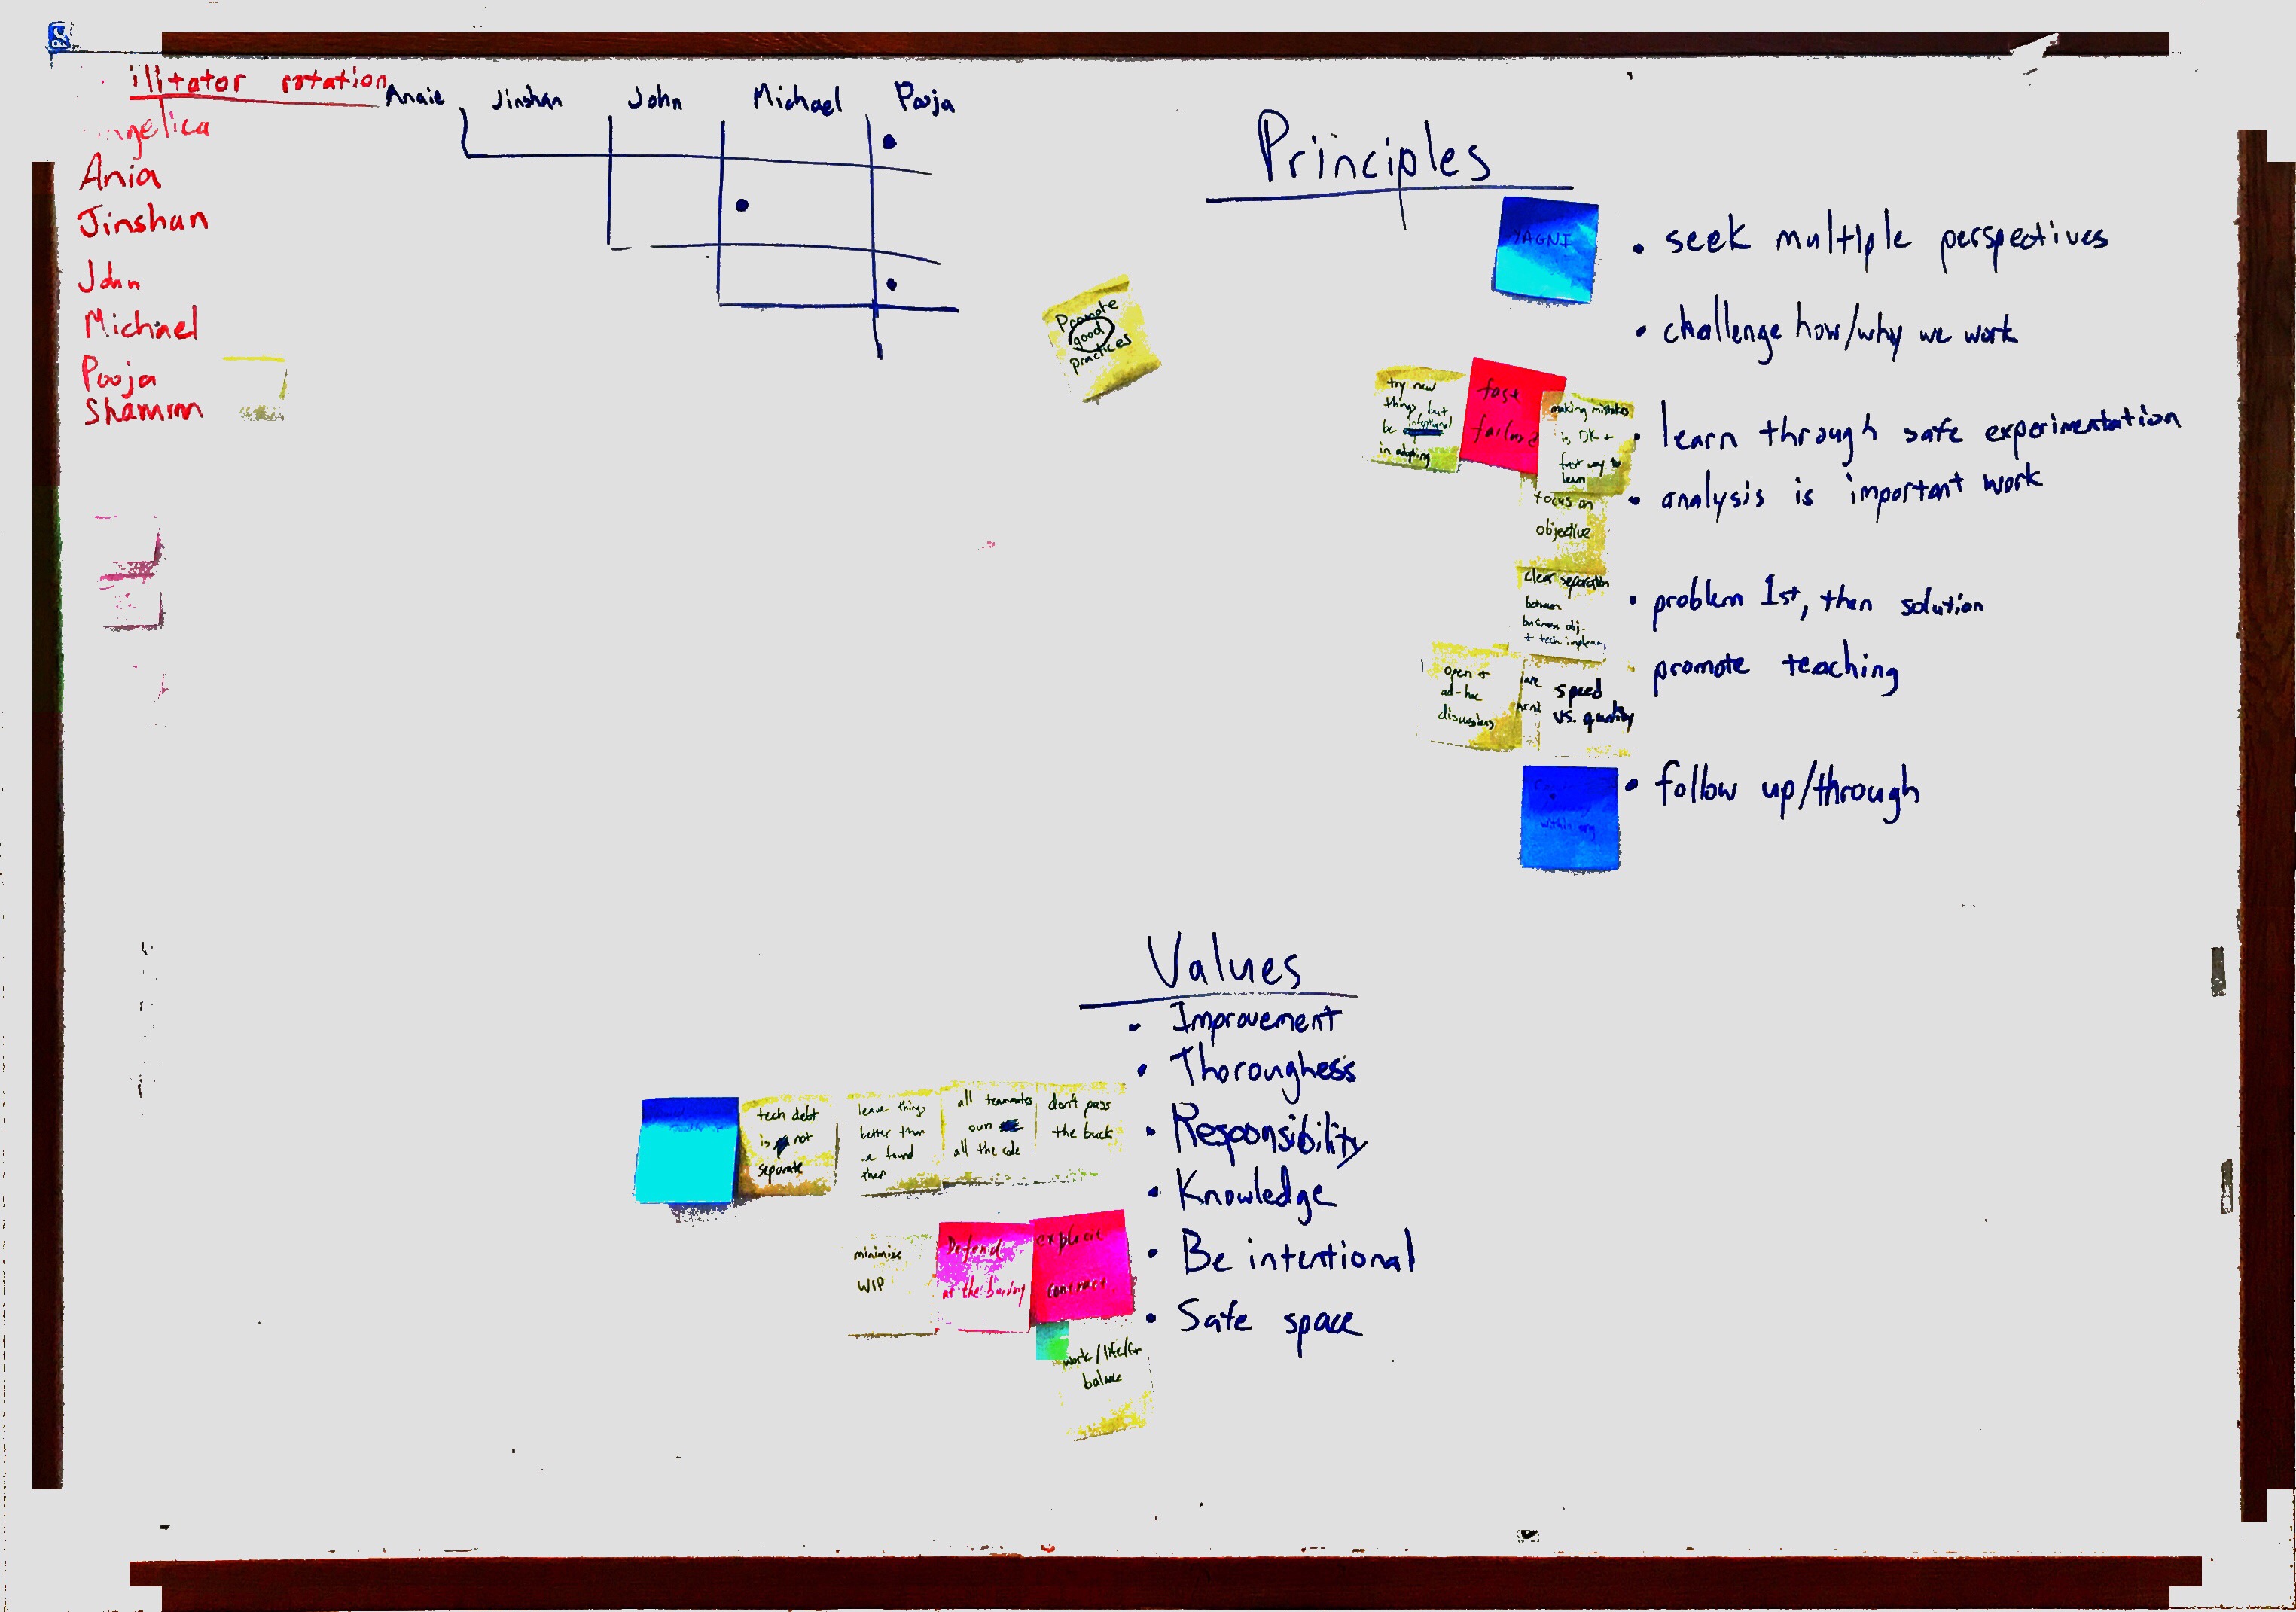 illitator rotation
Anaie Jinshan John Michael Pooja
ngelica
Ania
Jinshan
John
Michael
Pooja
Shamim
Promote
good
practices
Principles
YAGNI
• seek multiple perspectives
• challenge how/why we work
try new
things but
be intentional
in adopting
fast
failure
making mistakes
is OK +
fast way to
learn
• learn through safe experimentation
focus on
objective
• analysis is important work
clear separation
between
business obj.
+ tech implem.
• problem 1st, then solution
open +
ad-hoc
discussions
speed
vs. quality
promote teaching
within org
• follow up/through
Values
• Improvement
• Thoroughess
• Responsibility
• Knowledge
• Be intentional
• Safe space
tech debt
is not
separate
leave things
better than
we found
them
all teammates
own
all the code
don't pass
the buck
minimize
WIP
Defend
at the boundry
explicit
contract
work/life/fun
balance